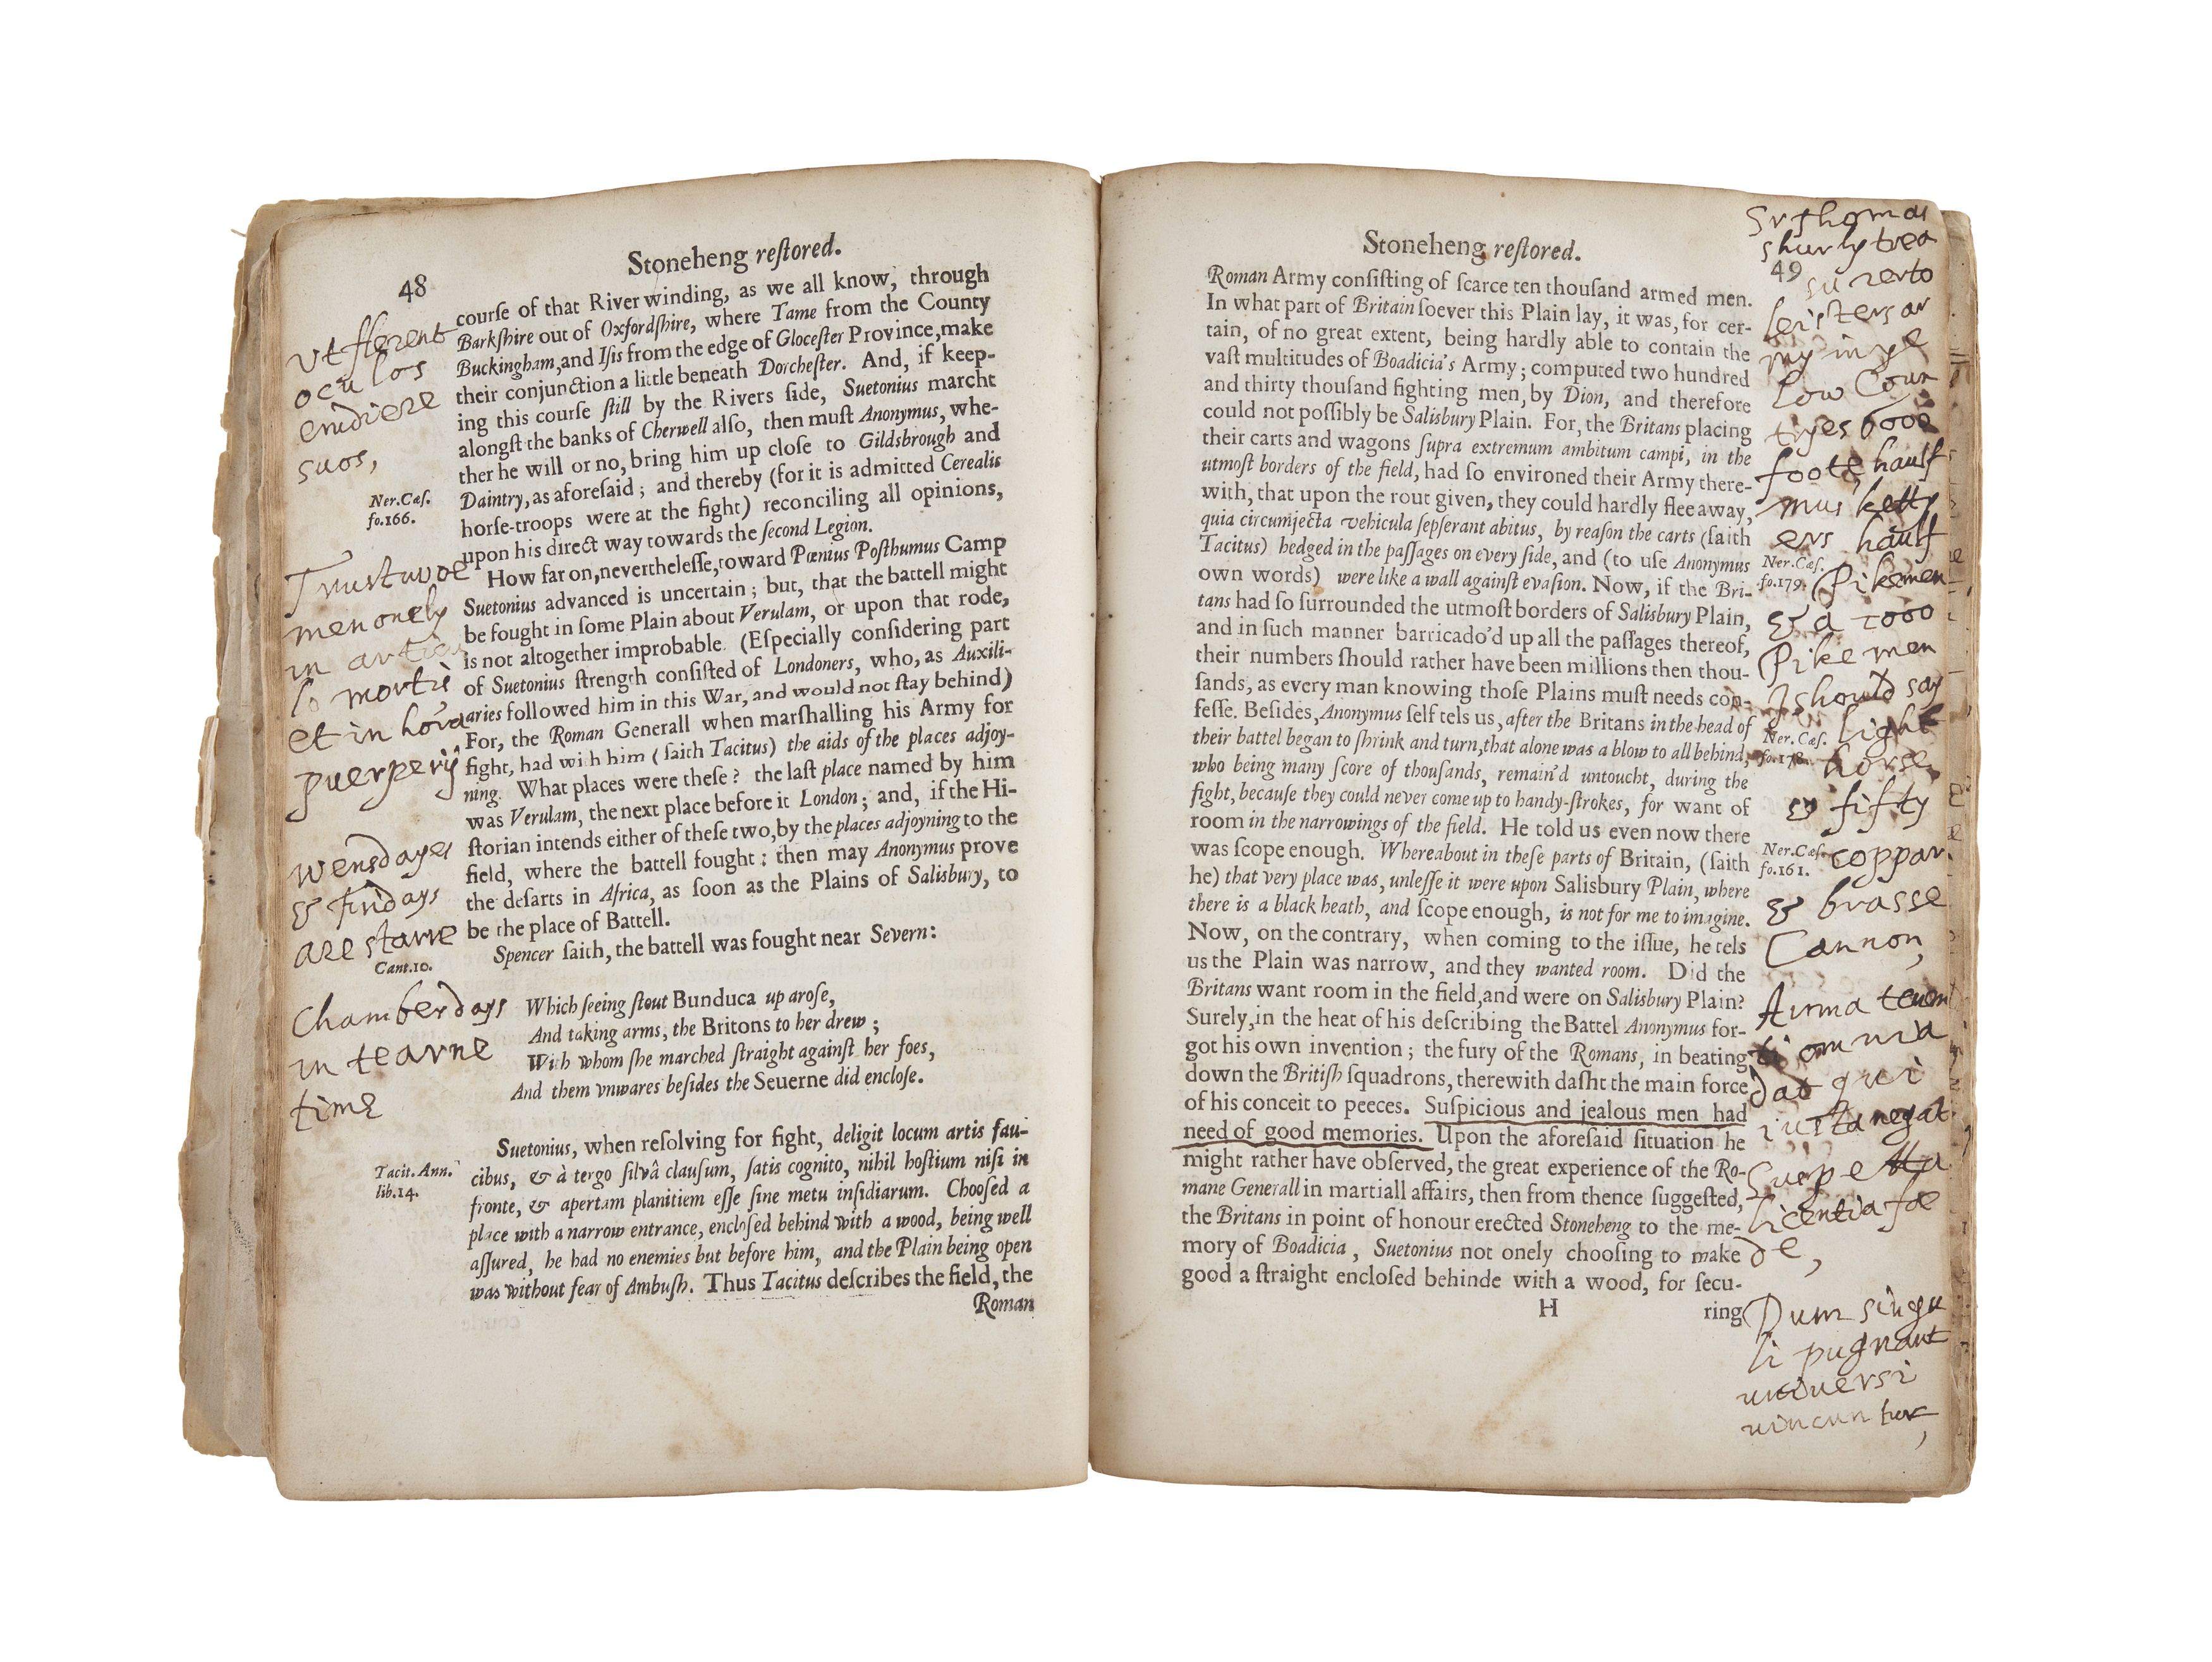 48
Stoneheng reſtored.
courſe of that River winding, as we all know, through
Barkſhire out of Oxfordſhire, where Tame from the County
Buckingham, and Iſis from the edge of Gloceſter Province, make
their conjunction a little beneath Dorcheſter. And, if keep-
ing this courſe ſtill by the Rivers ſide, Suetonius marcht
alongſt the banks of Cherwell alſo, then muſt Anonymus, whe-
ther he will or no, bring him up cloſe to Gildsbrough and
Daintry, as aforeſaid; and thereby (for it is admitted Cerealis
horſe-troops were at the fight) reconciling all opinions,
upon his direct way towards the ſecond Legion.
How far on, nevertheleſſe, toward Pœnius Poſthumus Camp
Suetonius advanced is uncertain; but, that the battell might
be fought in ſome Plain about Verulam, or upon that rode,
is not altogether improbable. (Eſpecially conſidering part
of Suetonius ſtrength conſiſted of Londoners, who, as Auxili-
aries followed him in this War, and would not ſtay behind)
For, the Roman Generall when marſhalling his Army for
fight, had with him (ſaith Tacitus) the aids of the places adjoy-
ning. What places were theſe? the laſt place named by him
was Verulam, the next place before it London; and, if the Hi-
ſtorian intends either of theſe two, by the places adjoyning to the
field, where the battell fought: then may Anonymus prove
the deſarts in Africa, as ſoon as the Plains of Salisbury, to
be the place of Battell.
Spencer ſaith, the battell was fought near Severn:
Which ſeeing ſtout Bunduca up aroſe,
And taking arms, the Britons to her drew;
With whom ſhe marched ſtraight againſt her foes,
And them vnwares beſides the Seuerne did encloſe.
Suetonius, when reſolving for fight, deligit locum artis fau-
cibus, & à tergo ſilvâ clauſum, ſatis cognito, nihil hoſtium niſi in
fronte, & apertam planitiem eſſe ſine metu inſidiarum. Chooſed a
place with a narrow entrance, encloſed behind with a wood, being well
aſſured, he had no enemies but before him, and the Plain being open
was without fear of Ambuſh. Thus Tacitus deſcribes the field, the
Roman
vt fferent
oculos
enidiere
suos,
Ner.Cæſ.
fo.166.
Trust twoe
men onely
in artic
lo mortis
et in hora
puerperij
wensdayes
& fridays
are starre
Cant.10.
Chamberdays
in tearne
time
Tacit. Ann.
lib.14.
Stoneheng reſtored.
49
Roman Army conſiſting of ſcarce ten thouſand armed men.
In what part of Britain ſoever this Plain lay, it was, for cer-
tain, of no great extent, being hardly able to contain the
vaſt multitudes of Boadicia's Army; computed two hundred
and thirty thouſand fighting men, by Dion, and therefore
could not poſſibly be Salisbury Plain. For, the Britans placing
their carts and wagons ſupra extremum ambitum campi, in the
utmoſt borders of the field, had ſo environed their Army there-
with, that upon the rout given, they could hardly flee away,
quia circumjecta vehicula ſepſerant abitus, by reaſon the carts (ſaith
Tacitus) hedged in the paſſages on every ſide, and (to uſe Anonymus
own words) were like a wall againſt evaſion. Now, if the Bri-
tans had ſo ſurrounded the utmoſt borders of Salisbury Plain,
and in ſuch manner barricado'd up all the paſſages thereof,
their numbers ſhould rather have been millions then thou-
ſands, as every man knowing thoſe Plains muſt needs con-
feſſe. Beſides, Anonymus ſelf tels us, after the Britans in the head of
their battel began to ſhrink and turn, that alone was a blow to all behind,
who being many ſcore of thouſands, remain'd untoucht, during the
fight, becauſe they could never come up to handy-ſtrokes, for want of
room in the narrowings of the field. He told us even now there
was ſcope enough. Whereabout in theſe parts of Britain, (ſaith
he) that very place was, unleſſe it were upon Salisbury Plain, where
there is a black heath, and ſcope enough, is not for me to imagine.
Now, on the contrary, when coming to the iſſue, he tels
us the Plain was narrow, and they wanted room. Did the
Britans want room in the field, and were on Salisbury Plain?
Surely, in the heat of his deſcribing the Battel Anonymus for-
got his own invention; the fury of the Romans, in beating
down the Britiſh ſquadrons, therewith daſht the main force
of his conceit to peeces. Suſpicious and jealous men had
need of good memories. Upon the aforeſaid ſituation he
might rather have obſerved, the great experience of the Ro-
mane Generall in martiall affairs, then from thence ſuggeſted,
the Britans in point of honour erected Stoneheng to the me-
mory of Boadicia, Suetonius not onely chooſing to make
good a ſtraight encloſed behinde with a wood, for ſecu-
H
ring
Sr thomas
shurly trea
surer to
leisters ar
my in ye
low Coun
tryes 6000
foote, haulf
musketty
ers haulf
Ner.Cæſ.
fo.179.
Pikemen
& a 1000
Pikemen
I should say
light
Ner.Cæſ.
fo.178.
horse,
& fifty
Ner.Cæſ.
fo.161.
coppar
& brasse
Cannon,
Arma tenen
ti omnia
dat qui
iusta negat
Suspetta
licentia fæ
de,
Dum singu
li pugnant
universi
vincuntur,